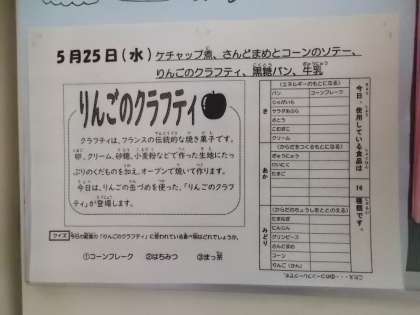 5月25日(水) ケチャップ煮、さんどまめとコーンのソテー、
りんごのクラフティ、黒糖パン、牛乳
りんごのクラフティ
クラフティは、フランスの伝統的な焼き菓子です。
卵、クリーム、砂糖、小麦粉などで作った生地にたっ
ぷりのくだものを加え、オーブンで焼いて作ります。
今日は、りんごの缶づめを使った、「りんごのクラフ
ティ」が登場します。
クイズ 今日の給食の「りんごのクラフティ」に使われている食べ物はどれでしょうか。
①コーンフレーク ②はちみつ ③まっ茶
今日、使用している食品は 16 種類です。
(エネルギーのもとになる)
き
パン コーンフレーク
じゃがいも
サラダあぶら
さとう
こむぎこ
クリーム
(からだをつくるもとになる)
あか
ぎゅうにゅう
けいにく
たまご
(からだのちょうしをととのえる)
みどり
たまねぎ
にんじん
グリンピース
さんどまめ
コーン
りんご(かん)